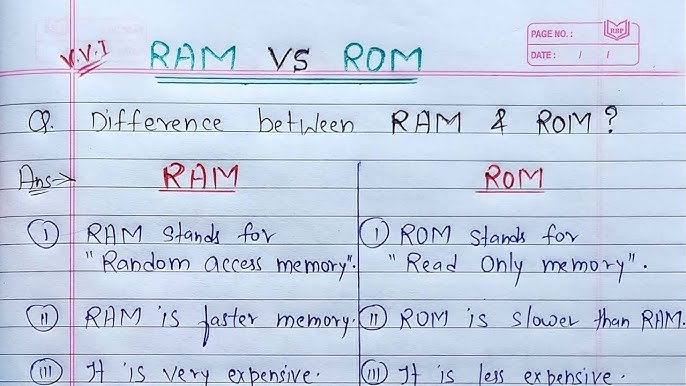 V.V.I RAM VS ROM
PAGE NO. :
RBP
DATE : / /
Q. Difference between RAM & ROM ?
Ans→ RAM ROM
(I) RAM stands for (I) ROM stands for
"Random access memory". "Read Only memory".
(II) RAM is faster memory. (II) ROM is slower than RAM.
(III) It is very expensive. (III) It is less expensive.